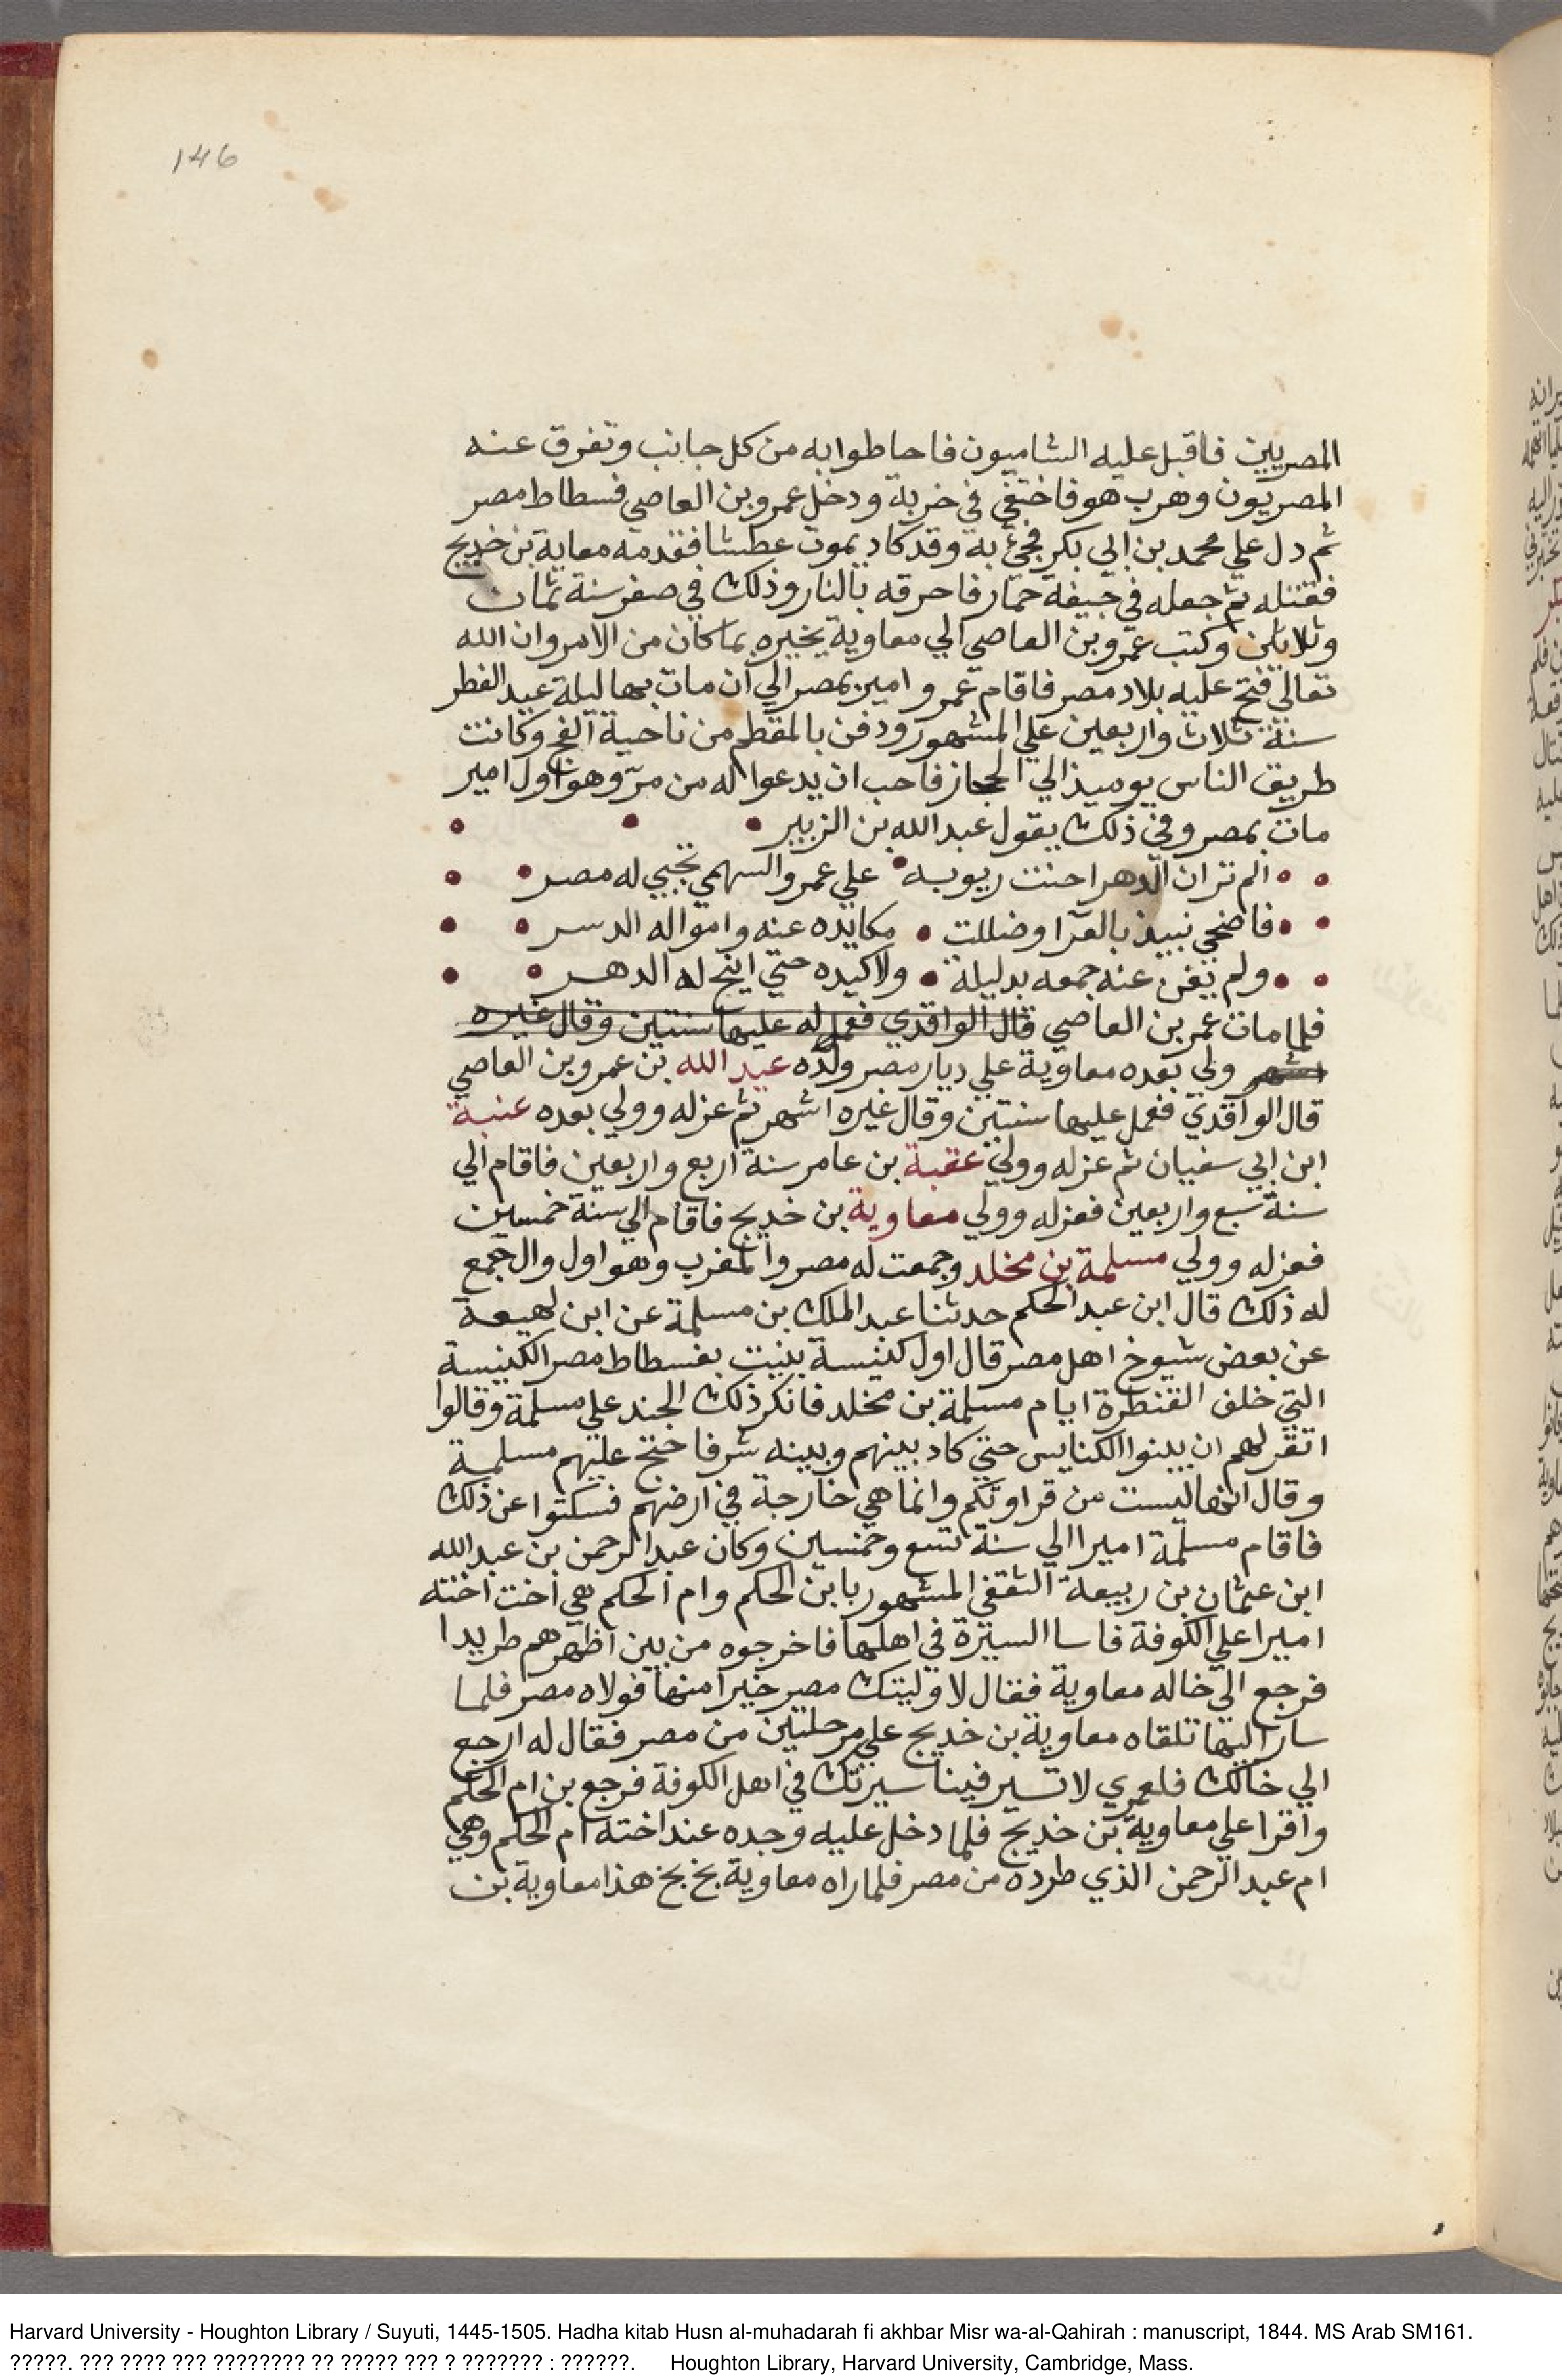 146
المصريين فاقبل عليه الشاميون فاحاطوا به من كل جانب وتفرق عنه
المصريون وهرب هو فاختفي في خربة ودخل عمرو بن العاصي فسطاط مصر
ثم دل علي محمد بن ابي بكر فجئ به وقد كاد يموت عطشا فقدمه معاية بن خديج
فقتله ثم جعله في جيفة حمار فاحرقه بالنار وذلك في صفر سنة ثمان
وثلاثين وكتب عمرو بن العاصي الي معاوية يخبره بما كان من الامر وان الله
تعالي فتح عليه بلاد مصر فاقام عمرو امير بمصر الي ان مات بها ليلة عيد الفطر
سنة ثلاث واربعين علي المشهور ودفن بالمقطم من ناحية الفج وكانت
طريق الناس يوميذ الي الحجاز فاحب ان يدعوا له من مر وهو اول امير
مات بمصر وفي ذلك يقول عبد الله بن الزبير
الم تر ان الدهر اخنت ريوبه علي عمرو السهمي تجبي له مصر
فاضحي نبيذ بالعرا وضللت مكايده عنه وامواله الدسر
ولم يغن عنه جمعه بدليلة ولا كيده حتي اتيح له الدهر
فلما مات عمر بن العاصي قال الواقدي فعمل له عليها سنتين وقال غيره
اشهر ولي بعده معاوية علي ديار مصر ولده عبد الله بن عمرو بن العاصي
قال الواقدي فعمل عليها سنتين وقال غيره اشهر ثم عزله وولي بعده عتبة
ابن ابي سفيان ثم عزله وولي عقبة بن عامر سنة اربع واربعين فاقام الي
سنة سبع واربعين فعزله وولي معاوية بن خديج فاقام الي سنة خمسين
فعزله وولي مسلمة بن مخلد وجمعت له مصر والمغرب وهو اول وال جمع
له ذلك قال ابن عبد الحكم حدثنا عبد الملك بن مسلمة عن ابن لهيعة
عن بعض شيوخ اهل مصر قال اول كنيسة بنيت بفسطاط مصر الكنيسة
التي خلف القنطرة ايام مسلمة بن مخلد فانكر ذلك الجند علي مسلمة وقالوا
اتقر لهم ان يبنوا الكنايس حتي كاد بينهم وبينه شر فاحتج عليهم مسلمة
وقال انها ليست من قراوتكم وانما هي خارجة في ارضهم فسكتوا عن ذلك
فاقام مسلمة اميرا الي سنة تسع وخمسين وكان عبد الرحمن بن عبد الله
ابن عثمان بن ربيعة الثقفي المشهور بابن الحكم وام الحكم هي اخت اخته
اميرا علي الكوفة فاسا السيرة في اهلها فاخرجوه من بين اظهرهم طريدا
فرجع الي خاله معاوية فقال لاوليتك مصر خيرا منها فولاه مصر فلما
سار اليها تلقاه معاوية بن خديج علي مرحلتين من مصر فقال له ارجع
الي خالك فلعمري لا تسير فينا سيرتك في اهل الكوفة فرجع بن ام الحكم
واقرا علي معاوية بن خديج فلما دخل عليه وجده عند اخته ام الحكم وهي
ام عبد الرحمن الذي طرده من مصر فلما راه معاوية بخ بخ هذا معاوية بن
Harvard University - Houghton Library / Suyuti, 1445-1505. Hadha kitab Husn al-muhadarah fi akhbar Misr wa-al-Qahirah : manuscript, 1844. MS Arab SM161.
?????. ??? ???? ??? ???????? ?? ????? ??? ? ??????? : ??????. Houghton Library, Harvard University, Cambridge, Mass.